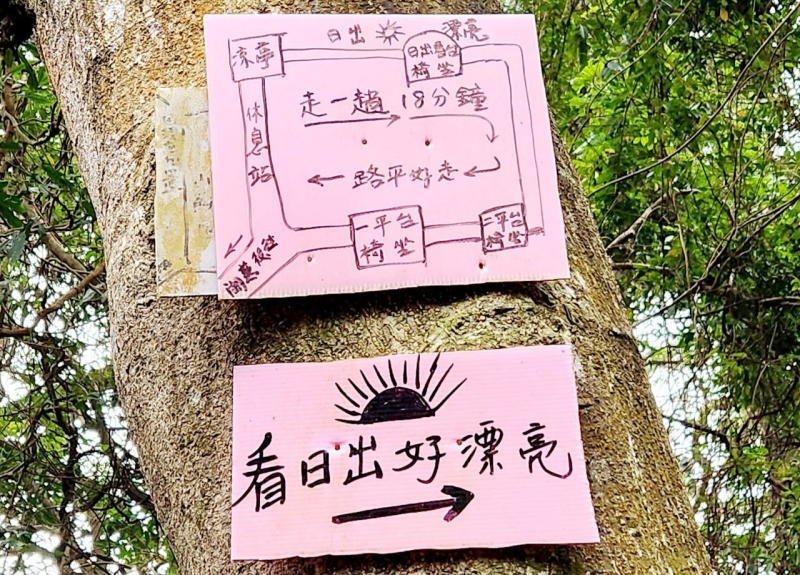 日出
漂亮
涼亭
日出看台
椅坐
走一趟 18分鐘
休息站
路平好走
一平台
椅坐
二平台
椅坐
看日出好漂亮